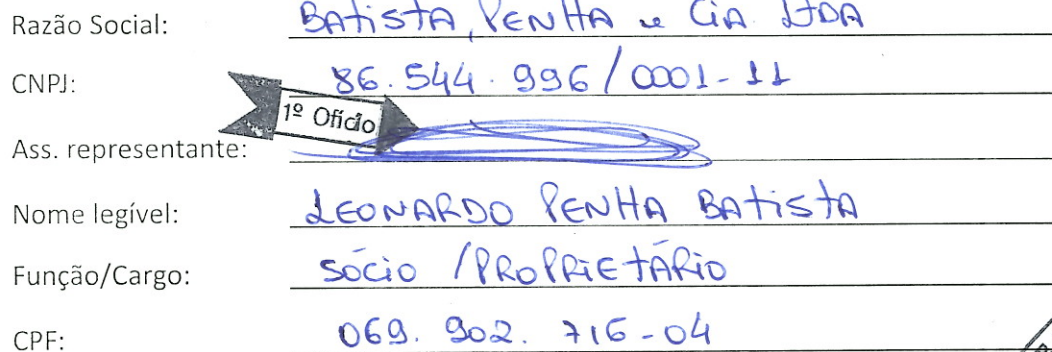 Razão Social: BAtistA, PENHA e CiA LTDA
CNPJ: 86.544.996/0001-11
1º Ofício
Ass. representante:
Nome legível: LEONARDO PENHA BAtistA
Função/Cargo: SÓCiO / PROPRiEtÁRiO
CPF: 069.902.716-04